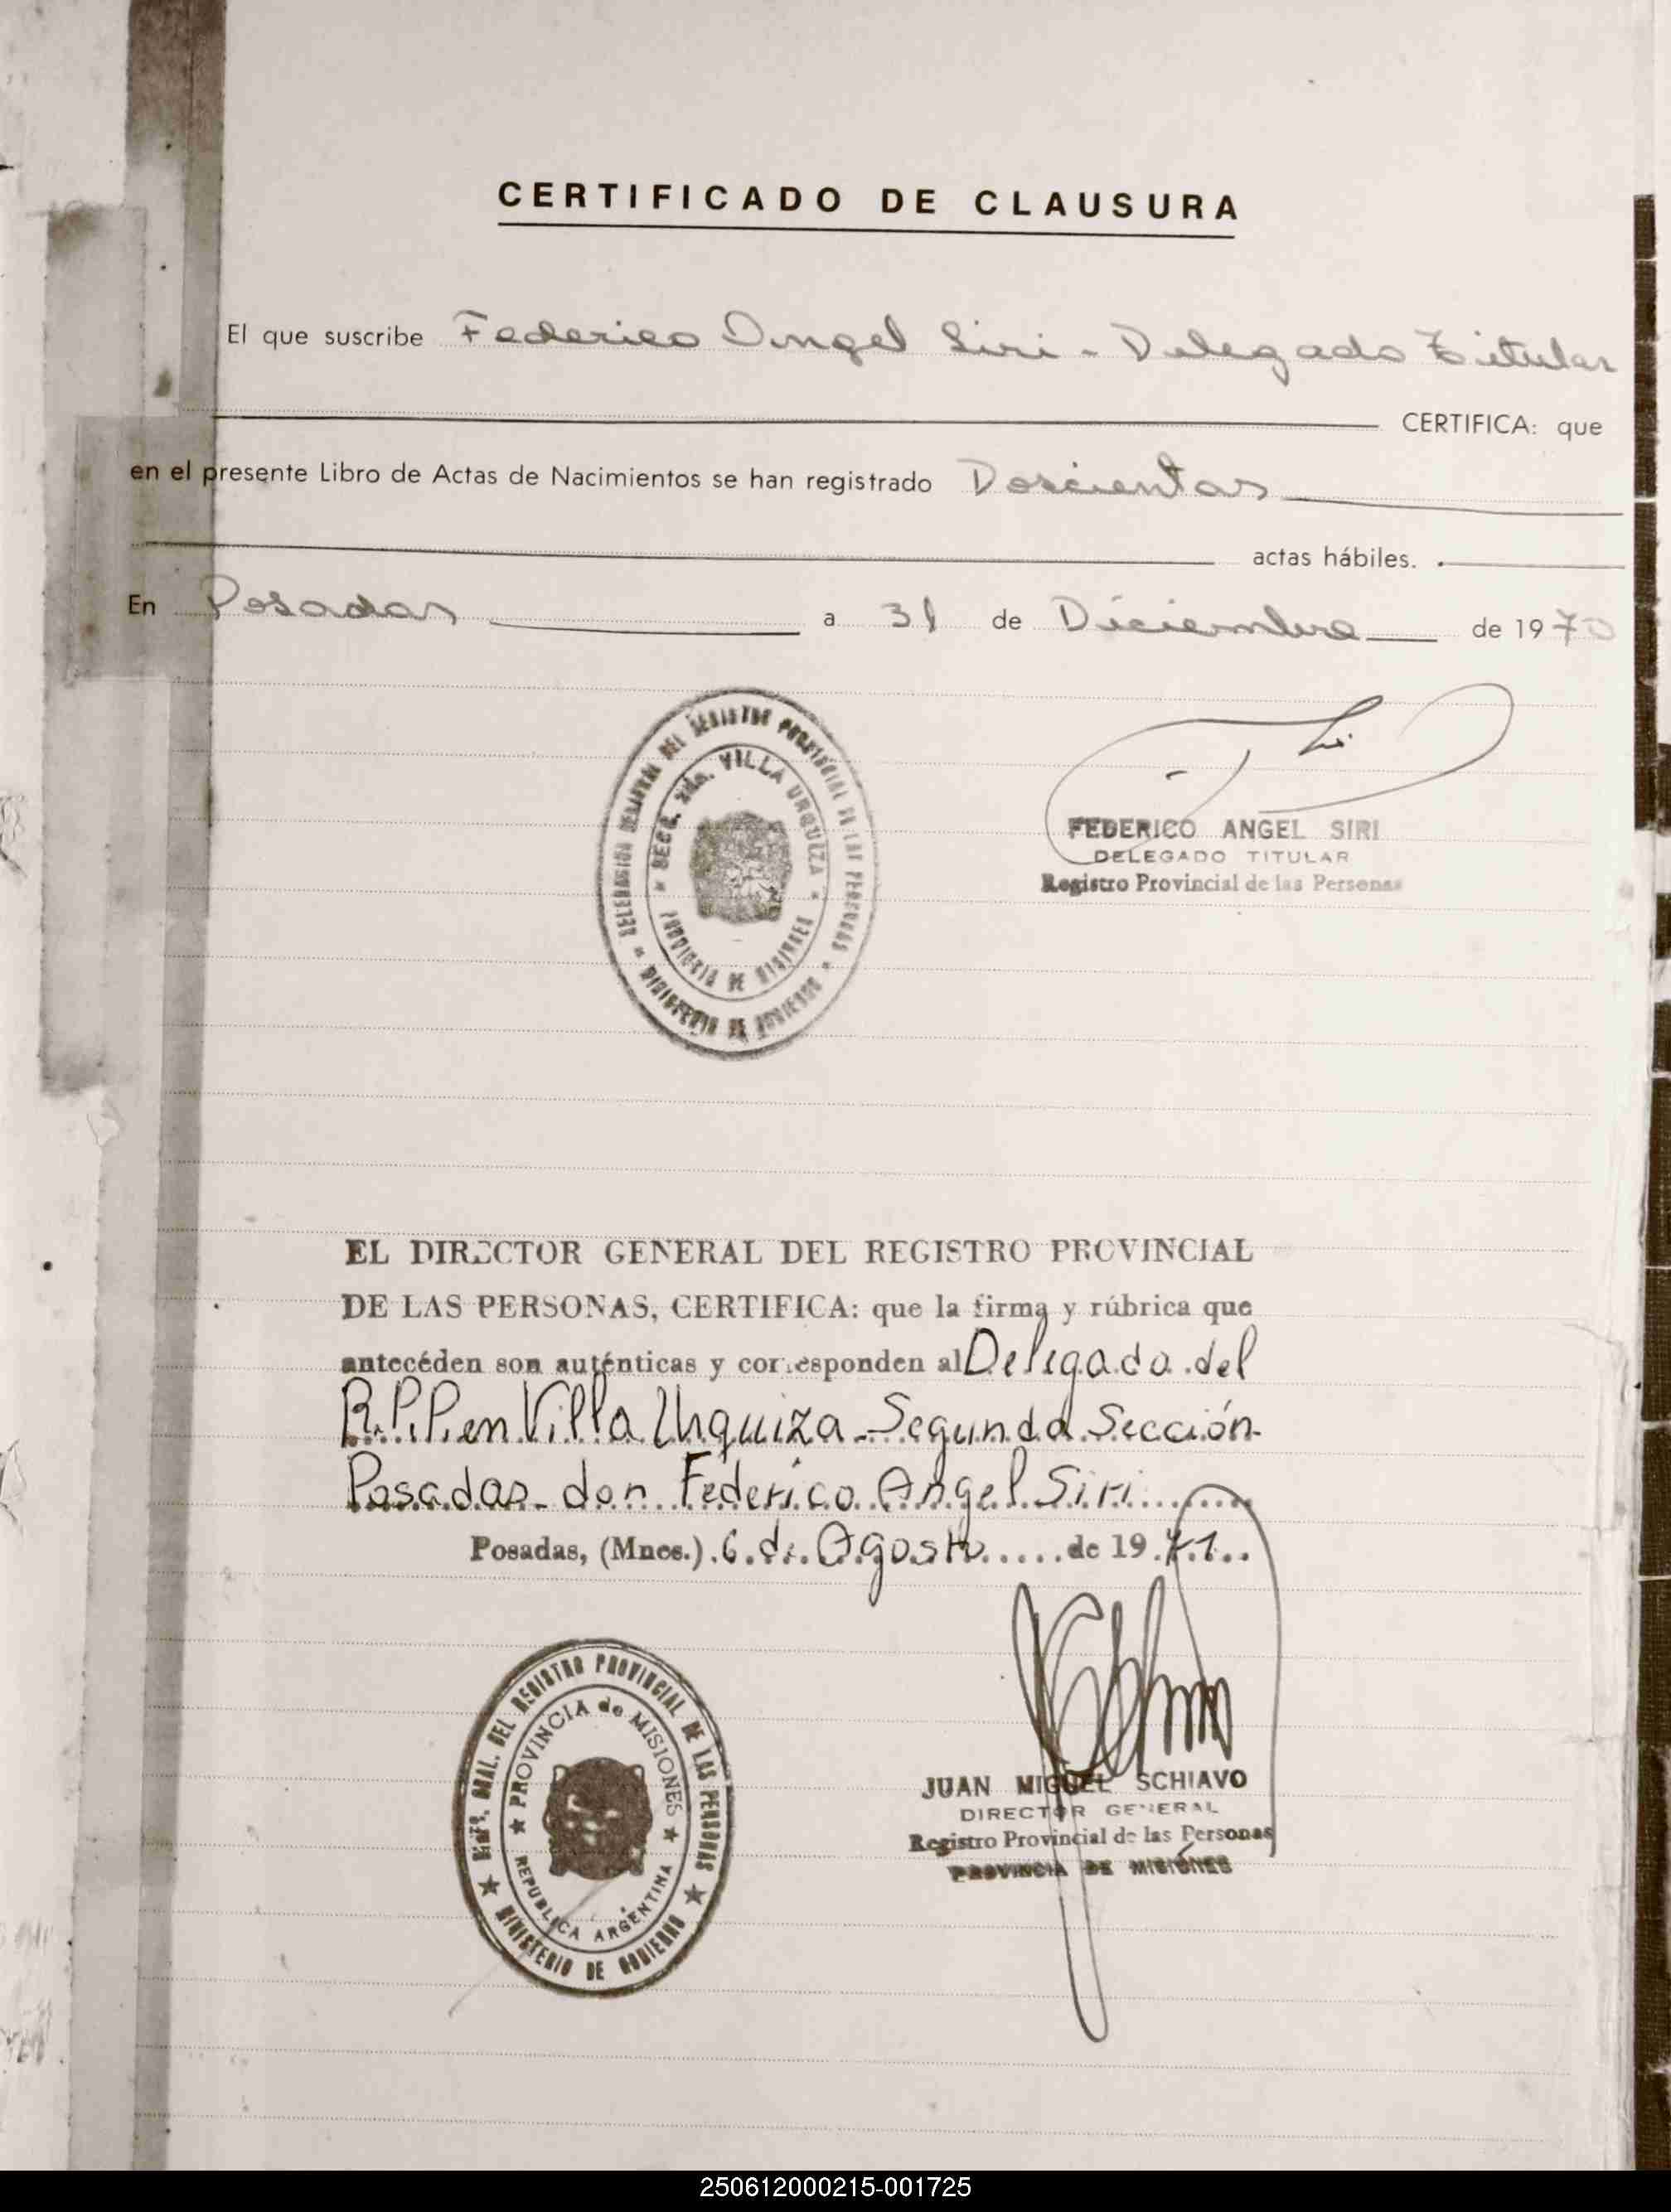 CERTIFICADO DE CLAUSURA
El que suscribe Federico Angel Siri - Delegado Titular
CERTIFICA: que
en el presente Libro de Actas de Nacimientos se han registrado Doscientas
actas hábiles.
En Posadas a 31 de Diciembre de 1970
DELEGACION DEL REGISTRO PROVINCIAL DE LAS PERSONAS
SECC. 2da. VILLA URQUIZA
PROVINCIA DE MISIONES
MINISTERIO DE GOBIERNO
FEDERICO ANGEL SIRI
DELEGADO TITULAR
Registro Provincial de las Personas
EL DIRECTOR GENERAL DEL REGISTRO PROVINCIAL
DE LAS PERSONAS, CERTIFICA: que la firma y rúbrica que
antecéden son auténticas y corresponden al Delegado del
R.P.P. en Villa Urquiza - Segunda Sección -
Posadas - don Federico Angel Siri
Posadas, (Mnes.) 6 de Agosto de 1971
GRAL. DEL REGISTRO PROVINCIAL DE LAS PERSONAS
PROVINCIA de MISIONES
REPUBLICA ARGENTINA
MINISTERIO DE GOBIERNO
JUAN MIGUEL SCHIAVO
DIRECTOR GENERAL
Registro Provincial de las Personas
PROVINCIA DE MISIONES
250612000215-001725